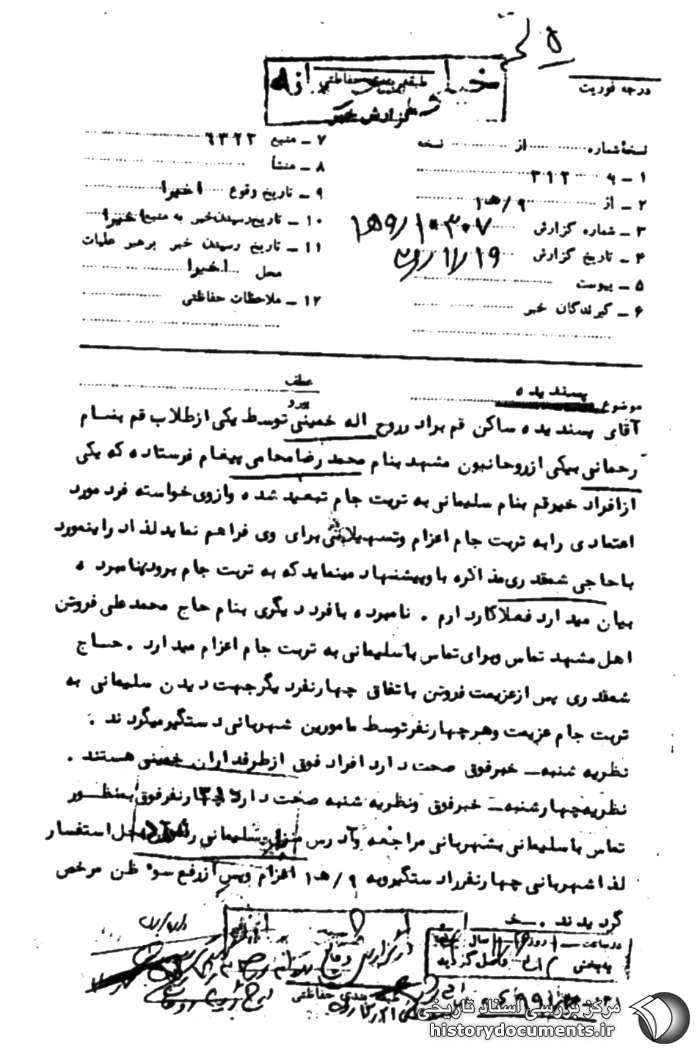 درجه فوریت
طبقه بندی حفاظتی
گزارش خبر
نسخهٔ شماره از نسخه
۱ - به ۳۱۲
۲ - از ۹/هـ۱
۳ - شماره گزارش
۴ - تاریخ گزارش
۵ - پیوست
۶ - گیرندگان خبر
۷ - منبع ۶۳۲۲
۸ - منشأ
۹ - تاریخ وقوع اخیرا
۱۰ - تاریخ رسیدن خبر به منبع اخیرا
۱۱ - تاریخ رسیدن خبر برهبر عملیات
محل اخیرا
۱۲ - ملاحظات حفاظتی
موضوع پسندیده
عطف
پیرو
آقای پسندیده ساکن قم برادر روح اله خمینی توسط یکی از طلاب قم بنام
رحمانی بیکی از روحانیون مشهد بنام محمد رضا محامی پیغام فرستاده که یکی
از افراد خیر قم بنام سلیمانی به تربت جام تبعید شده و از وی خواسته فرد مورد
اعتمادی را به تربت جام اعزام و تسهیلاتی برای وی فراهم نماید لذا در اینمورد
با حاجی شمقدری مذاکره و باو پیشنهاد مینماید که به تربت جام برود نامبرده
بیان میدارد فعلا کار دارم . نامبرده با فرد دیگری بنام حاج محمد علی فروتن
اهل مشهد تماس و برای تماس با سلیمانی به تربت جام اعزام میدارد . حاج
شمقدری پس از عزیمت فروتن باتفاق چهار نفر دیگر جهت دیدن سلیمانی به
تربت جام عزیمت و هر چهار نفر توسط مامورین شهربانی دستگیر میگردند .
نظریه شنبه - خبر فوق صحت دارد افراد فوق از طرفداران خمینی هستند .
نظریه چهارشنبه - خبر فوق و نظریه شنبه صحت دارد چهار نفر فوق بمنظور
تماس با سلیمانی بشهربانی مراجعه و آدرس منزل سلیمانی را از محل استفسار
لذا شهربانی چهار نفر را دستگیر و به ۹/هـ۱ اعزام و پس از رفع سوء ظن مرخص
گردیدند .
در ساعت روز سال
به بخش واصل گردید
طبقه بندی حفاظتی
مرکز بررسی اسناد تاریخی
historydocuments.ir